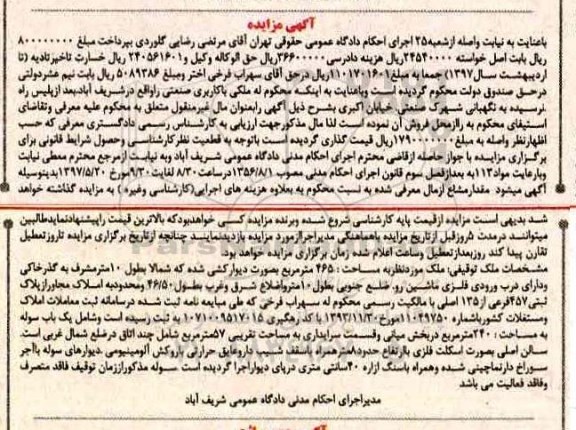 آگهی مزایده
باعنایت به نیابت واصله ازشعبه۲۵ اجرای احکام دادگاه عمومی حقوقی تهران آقای مرتضی رضایی گلوردی بپرداخت مبلغ ۸۰۰۰۰۰۰۰۰
ریال بابت اصل خواسته ۲۴۵۴۰۰۰۰ریال هزینه دادرسی۳۶۶۰۰۰۰۰ریال حق الوکاله وکیل و۲۴۰۵۶۱۶۰۱ ریال خسارت تاخیرتادیه (تا
اردیبهشت سال۱۳۹۷) جمعا به مبلغ۱۱۰۱۷۰۱۶۰۱ریال درحق آقای سهراب فرخی اختر ومبلغ ۵۰۸۹۳۸۶ ریال بابت نیم عشردولتی
درحق صندوق دولت محکوم گردیده است وباعنایت به اینکه محکوم له ملکی باکاربری صنعتی راواقع درشریف آباد،بعد ازپلیس راه
،نرسیده به نگهبانی شهرک صنعتی خیابان اکبری بشرح ذیل آگهی رابعنوان مال غیرمنقول متعلق به محکوم علیه معرفی وتقاضای
استیفای محکوم به رازمحل فروش آن نموده است لذا مال مذکورجهت ارزیابی به کارشناس رسمی دادگستری معرفی که حسب
اظهارنظر واصله به مبلغ ۱۷۹۰۰۰۰۰۰۰۰ریال قیمت گذاری گردیده است باتوجه به قطعیت نظرکارشناسی وحصول شرایط قانونی برای
برگزاری مزایده با جوازحاصله ازقاضی محترم اجرای احکام مدنی دادگاه عمومی شریف آباد وبه نیابت ازمرجع محترم معطی نیابت
وبارعایت مواد۱۱۳به بعدازفصل سوم قانون اجرای احکام مدنی مصوب ۱۳۵۶/۸/۱درساعت۸/۳۰ لغایت ۹/۳۰مورخ ۱۳۹۷/۵/۲۰بدینوسیله
آگهی میشود مقدارمشاع ازمال معرفی شده به نسبت محکوم به بعلاوه هزینه های اجرایی(کارشناسی وغیره ) به مزایده گذاشته خواهد
شد بدیهی است مزایده ازقیمت پایه کارشناسی شروع شده وبرنده مزایده کسی خواهدبودکه بالاترین قیمت راپیشنهادنمایدطالبین
میتوانند درمدت ۵روزقبل ازتاریخ مزایده باهماهنگی مدیراجراازمورد مزایده بازدیدنمایند چنانچه ازتاریخ برگزاری مزایده تاروزتعطیل
تقارن پیدا کند روزبعدازتعطیل وساعت اعلام شده زمان برگزاری مزایده خواهد بود.
مشخصات ملک توقیفی: ملک موردنظربه مساحت : ۴۶۵ مترمربع بصورت دیوارکشی شده که شمالا بطول ۱۰مترمشرف به گذرخاکی
ودارای درب ورودی فلزی ماشین رو، ضلع جنوبی بطول۱۰متروانضلاع شرق وغرب بطول۴۶/۵۰ ومحدوبه املاک مجاورازپلاک
ثبتی۴۵۷فرعی از۱۳۵ اصلی با مالکیت رسمی محکوم له سهراب فرخی که طی مبایعه نامه ثبت شده درسامانه ثبت معاملات املاک
ومستغلات کشورباشماره ۱۱۰۴۹۷۵۰مورخ۱۳۹۳/۱۱/۳۰ با کدرهگیری ۱۰۷۱۰۰۹۵۱۷۰۱۵ به ثبت رسیده است وشامل یک باب سوله
به مساحت : ۲۴۰مترمربع دربخش میانی وقسمت سرایداری به مساحت تقریبی ۵۷مترمربع شامل چند اتاق درضلع شمال غربی است.
سالن اصلی بصورت اسکلت فلزی بارتفاع حدود۸متر همراه باسقف شیب داروعایق حرارتی باروکش آلومینیومی ،دیوارهای سوله باآجر
سوراخ دارنماچینی شده وهمراه باسنگ ازاره ۴۰سانتی متری درپای دیواراجرا گردیده است .سوله مذکوراززمان توقیف فاقد متصرف
وفاقد فعالیت می باشد
مدیراجرای احکام مدنی دادگاه عمومی شریف آباد